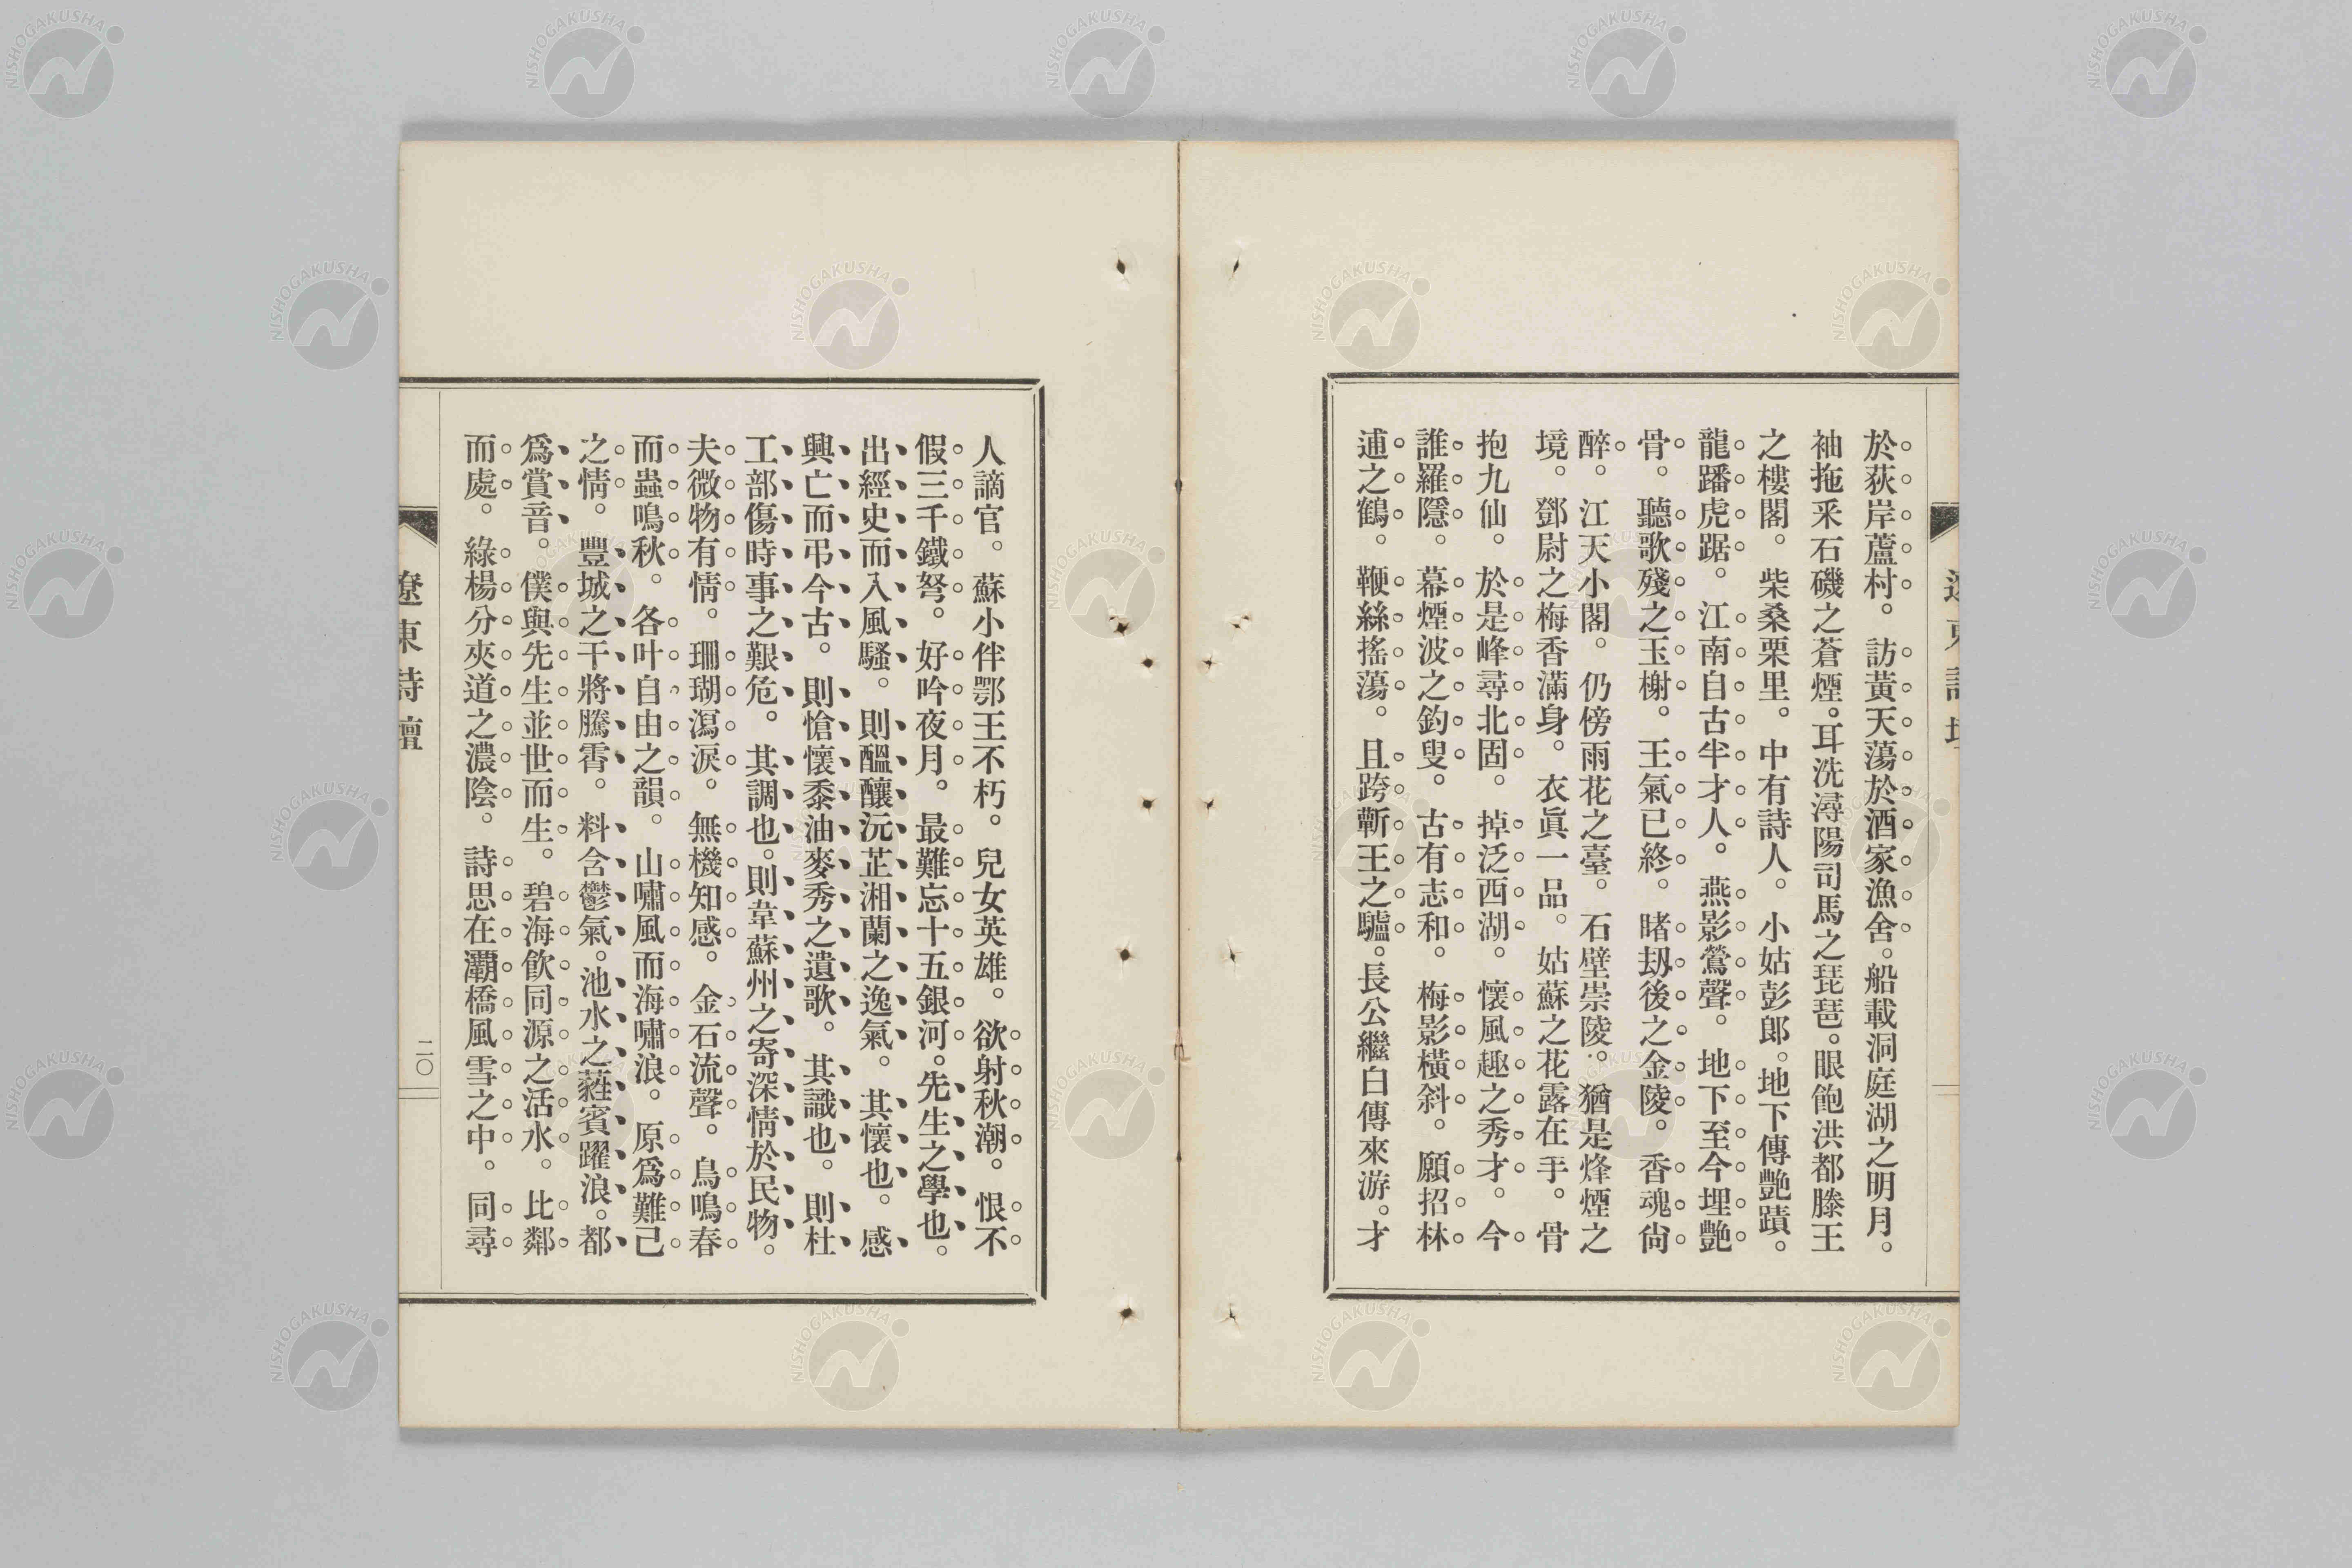 於荻岸蘆村。訪黃天蕩於酒家漁舍。船載洞庭湖之明月。
袖拖釆石磯之蒼煙。耳洗潯陽司馬之琵琶。眼飽洪都滕王
之樓閣。柴桑栗里。中有詩人。小姑彭郎。地下傳艷蹟。
龍蹯虎踞。江南自古半才人。燕影鶯聲。地下至今埋艷
骨。聽歌殘之玉樹。王氣已終。睹刼後之金陵。香魂尙
醉。江天小閣。仍傍雨花之臺。石壁崇陵。猶是烽煙之
境。鄧尉之梅香滿身。衣眞一品。姑蘇之花露在手。骨
抱九仙。於是峰尋北固。掉泛西湖。懷風趣之秀才。今
誰羅隱。幕煙波之釣叟。古有志和。梅影橫斜。願招林
逋之鶴。鞭絲搖蕩。且跨蘄王之驢。長公繼白傳來游。才
人謫官。蘇小伴鄂王不朽。兒女英雄。欲射秋潮。恨不
假三千鐵弩。好吟夜月。最難忘十五銀河。先生之學也。
出經史而入風騷。則醞釀沅芷湘蘭之逸氣。其懷也。感
興亡而弔今古。則愴懷黍油麥秀之遺歌。其識也。則杜
工部傷時事之艱危。其調也。則韋蘇州之寄深情於民物。
夫微物有情。珊瑚瀉淚。無機知感。金石流聲。鳥鳴春
而蟲鳴秋。各叶自由之韻。山嘯風而海嘯浪。原爲難已
之情。豐城之干將騰霄。料含鬱氣。池水之蕤賓躍浪。都
爲賞音。僕與先生並世而生。碧海飮同源之活水。比鄰
而處。綠楊分夾道之濃陰。詩思在灞橋風雪之中。同尋
遼東詩壇
二〇